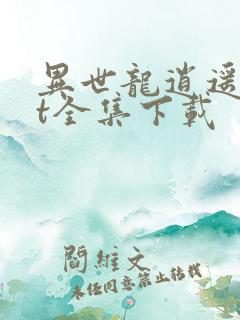 異世龍逍遥
t全集下載
閻維文
未经同意禁止转载